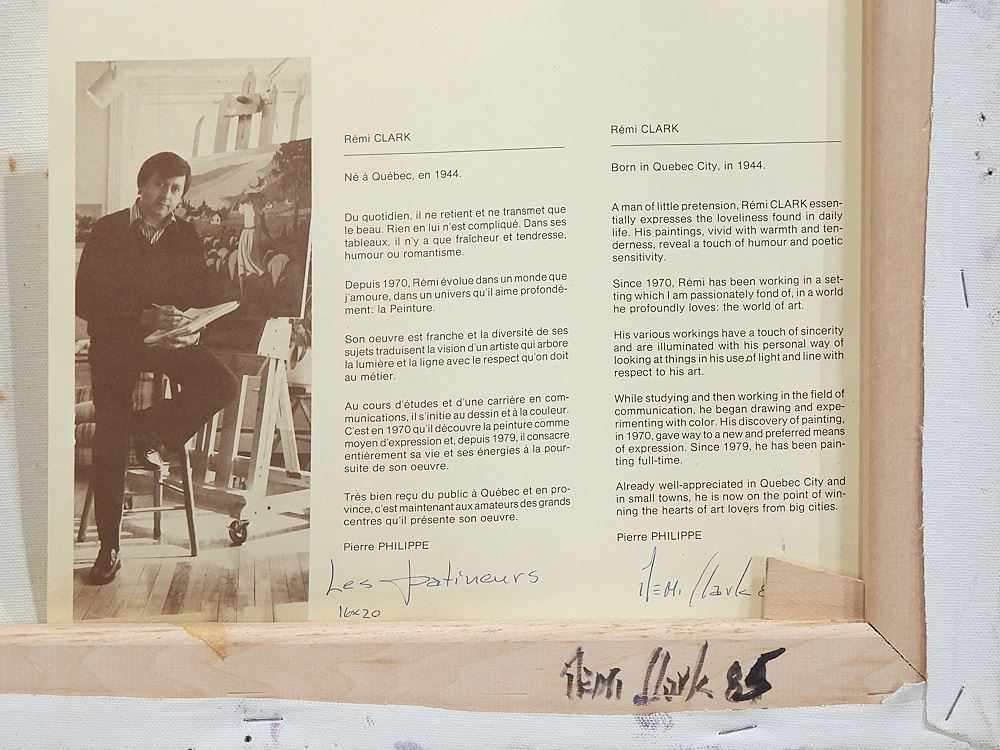 Rémi CLARK
Né à Québec, en 1944.
Du quotidien, il ne retient et ne transmet que
le beau. Rien en lui n'est compliqué. Dans ses
tableaux, il n'y a que fraîcheur et tendresse,
humour ou romantisme.
Depuis 1970, Rémi évolue dans un monde que
j'amoure, dans un univers qu'il aime profondé-
ment: la Peinture.
Son oeuvre est franche et la diversité de ses
sujets traduisent la vision d'un artiste qui arbore
la lumière et la ligne avec le respect qu'on doit
au métier.
Au cours d'études et d'une carrière en com-
munications, il s'initie au dessin et à la couleur.
C'est en 1970 qu'il découvre la peinture comme
moyen d'expression et, depuis 1979, il consacre
entièrement sa vie et ses énergies à la pour-
suite de son oeuvre.
Très bien reçu du public à Québec et en pro-
vince, c'est maintenant aux amateurs des grands
centres qu'il présente son oeuvre.
Pierre PHILIPPE
Les patineurs
16x20
Rémi CLARK
Born in Quebec City, in 1944.
A man of little pretension, Rémi CLARK essen-
tially expresses the loveliness found in daily
life. His paintings, vivid with warmth and ten-
derness, reveal a touch of humour and poetic
sensitivity.
Since 1970, Rémi has been working in a set-
ting which I am passionately fond of, in a world
he profoundly loves: the world of art.
His various workings have a touch of sincerity
and are illuminated with his personal way of
looking at things in his use of light and line with
respect to his art.
While studying and then working in the field of
communication, he began drawing and expe-
rimenting with color. His discovery of painting,
in 1970, gave way to a new and preferred means
of expression. Since 1979, he has been pain-
ting full-time.
Already well-appreciated in Quebec City and
in small towns, he is now on the point of win-
ning the hearts of art lovers from big cities.
Pierre PHILIPPE
Rémi Clark 8
Rémi Clark 85